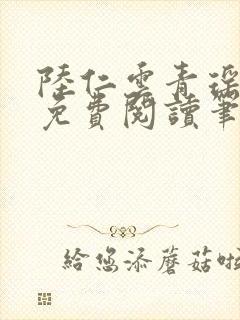 陸仁雲青瑤
免費閱讀筆
給您添蘑菇啦